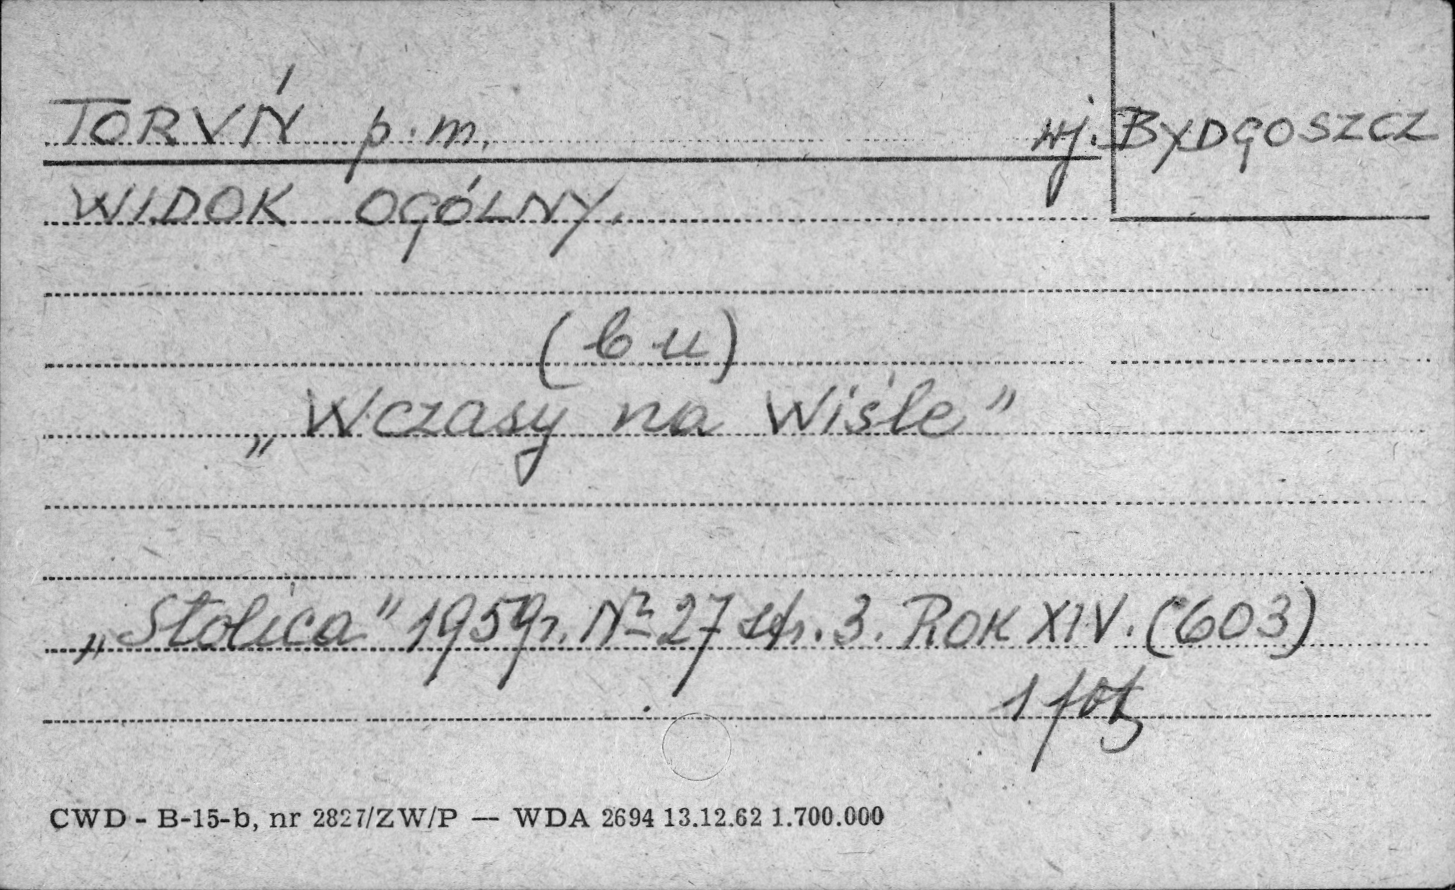 TORVŃ p.m. wj. BYDGOSZCZ
WIDOK OGÓLNY.
(bu)
„Wczasy na Wiśle”
„Stolica” 1959r. № 27 str. 3. ROK XIV. (603)
1 fot
CWD - B-15-b, nr 2827/ZW/P — WDA 2694 13.12.62 1.700.000